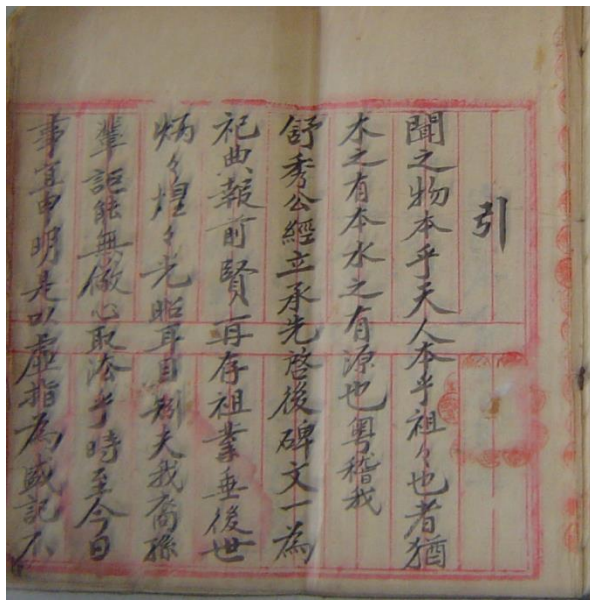 引
聞之物本乎天人本乎祖々也者猶
木之有本水之有源也粵稽我
舒秀公經立承先啓後碑文一為
祀典報前賢一再存祖業垂後世
炳々煌々光昭耳目矧夫我裔孫
輩詎能無儆心取法乎時至今日
事宜申明是以虛指為盛記不